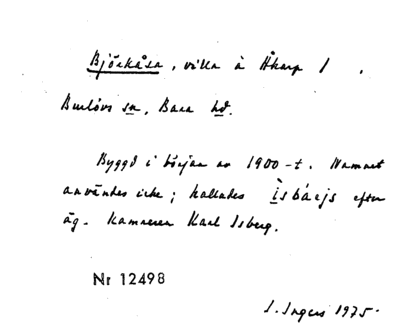 Björkåsa, villa å Åkarp 1.
Burlövs sn, Bara hd.
Byggd i början av 1900-t. Namnet
användes icke; kallades Ìsbáejs efter
äg. kamrerer Karl Isberg.
Nr 12498
I. Ingers 1975.